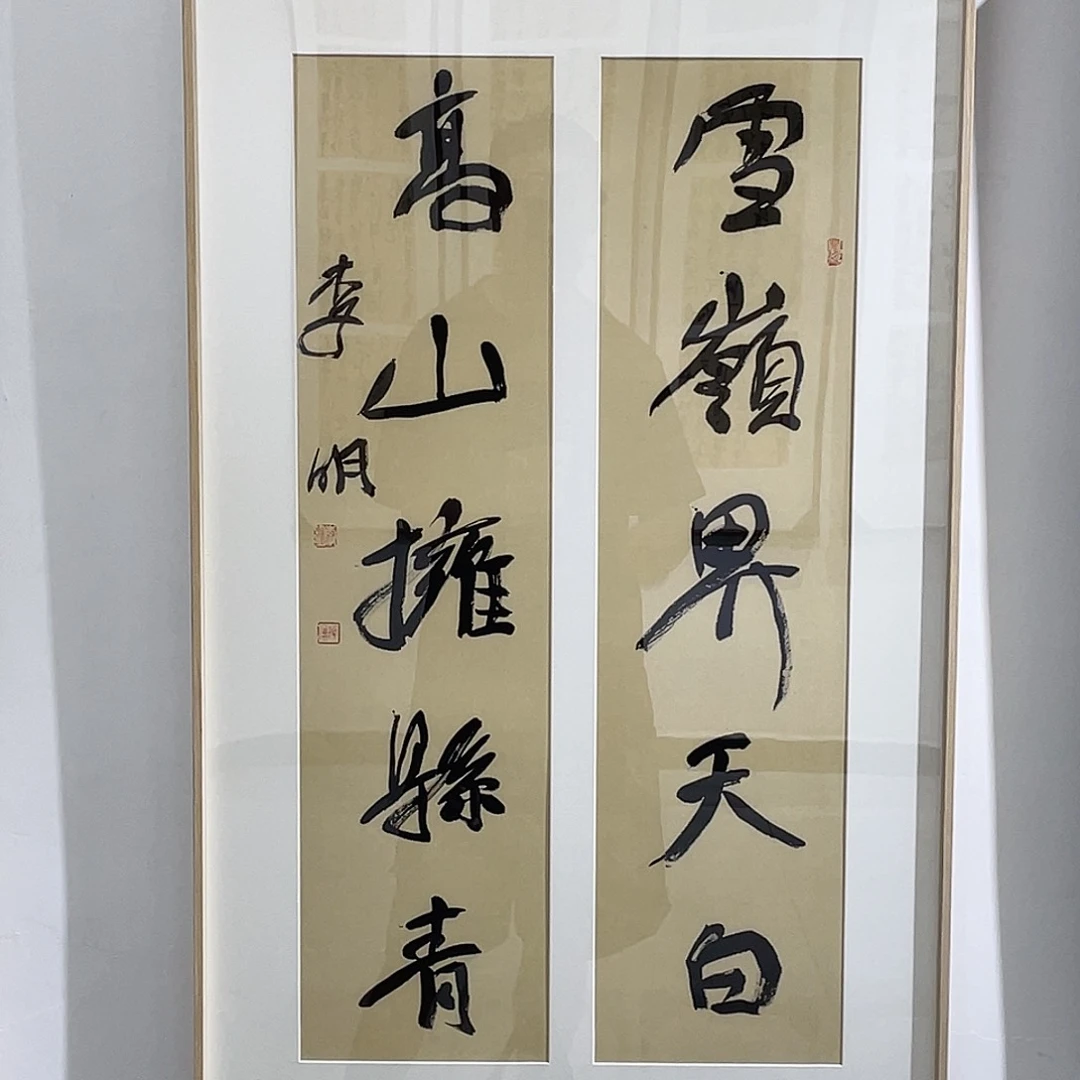 雪嶺界天白
高山擁縣青
李明